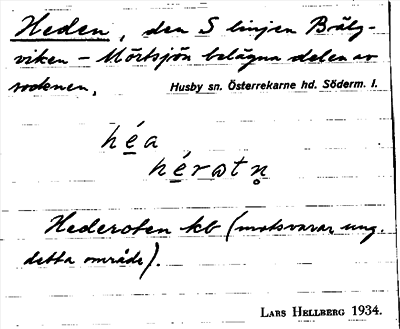 Heden, den S linjen Bälg-
viken – Mörtsjön belägna delen av
socknen.
Husby sn. Österrekarne hd. Söderm. l.
héa
hérωtn̥
Hederoten kb (motsvarar ung.
detta område).
LARS HELLBERG 1934.